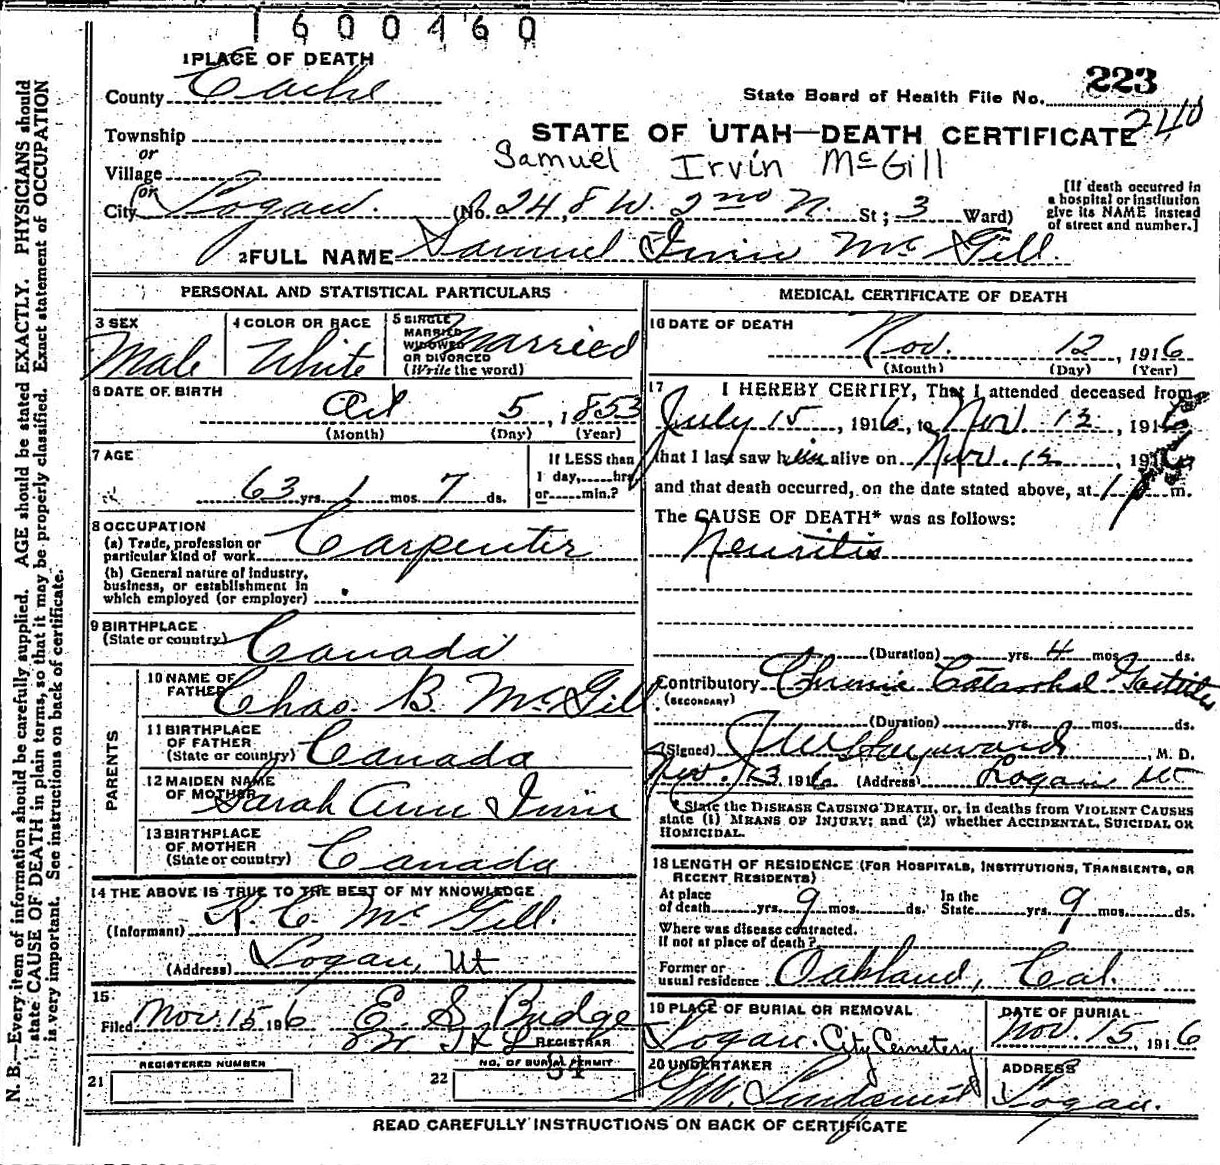 1600460
1 PLACE OF DEATH
223
County Cache
State Board of Health File No. 240
Township
STATE OF UTAH—DEATH CERTIFICATE
or
Village
Samuel Irvin McGill
or
City Logan. (No. 248 W. 2nd N. St; 3 Ward)
[If death occurred in
a hospital or institution
give its NAME instead
of street and number.]
2 FULL NAME Samuel Irvin McGill.
PERSONAL AND STATISTICAL PARTICULARS
3 SEX
Male
4 COLOR OR RACE
White
5 SINGLE
MARRIED
WIDOWED
OR DIVORCED
(Write the word)
Married
6 DATE OF BIRTH
Oct 5, 1853
(Month) (Day) (Year)
7 AGE
63 yrs. 1 mos. 7 ds.
If LESS than
1 day, hrs
or min.?
8 OCCUPATION
(a) Trade, profession or
particular kind of work Carpenter
(b) General nature of industry,
business, or establishment in
which employed (or employer)
9 BIRTHPLACE
(State or country) Canada
PARENTS
10 NAME OF
FATHER Chas. B. McGill
11 BIRTHPLACE
OF FATHER
(State or country) Canada
12 MAIDEN NAME
OF MOTHER Sarah Ann Irvin
13 BIRTHPLACE
OF MOTHER
(State or country) Canada
14 THE ABOVE IS TRUE TO THE BEST OF MY KNOWLEDGE
(Informant) R. C. McGill.
(Address) Logan, Ut
15
Filed Nov. 15 1916 E. S. Budge
REGISTRAR
REGISTERED NUMBER
21
NO. OF BURIAL PERMIT
22 54
MEDICAL CERTIFICATE OF DEATH
16 DATE OF DEATH
Nov. 12, 1916
(Month) (Day) (Year)
17 I HEREBY CERTIFY, That I attended deceased from
July 15, 1916, to Nov 12, 1916
that I last saw him alive on Nov. 12, 1916
and that death occurred, on the date stated above, at 1 p m.
The CAUSE OF DEATH* was as follows:
Neuritis
(Duration) yrs. 4 mos. ds.
Contributory Chronic Catarrhal Gastritis
(SECONDARY)
(Duration) yrs. mos. ds.
(Signed) J W Hayward, M. D.
Nov. 13 1916 (Address) Logan Ut
* State the DISEASE CAUSING DEATH, or, in deaths from VIOLENT CAUSES
state (1) MEANS OF INJURY; and (2) whether ACCIDENTAL, SUICIDAL OR
HOMICIDAL.
18 LENGTH OF RESIDENCE (FOR HOSPITALS, INSTITUTIONS, TRANSIENTS, OR
RECENT RESIDENTS)
At place
of death yrs. 9 mos. ds.
In the
State yrs. 9 mos. ds.
Where was disease contracted.
If not at place of death?
Former or
usual residence Oakland, Cal.
19 PLACE OF BURIAL OR REMOVAL
Logan. City Cemetery
DATE OF BURIAL
Nov. 15, 1916
20 UNDERTAKER
Lindquist
ADDRESS
Logan.
READ CAREFULLY INSTRUCTIONS ON BACK OF CERTIFICATE
N. B.—Every item of information should be carefully supplied. AGE should be stated EXACTLY. PHYSICIANS should
state CAUSE OF DEATH in plain terms, so that it may be properly classified. Exact statement of OCCUPATION
is very important. See instructions on back of certificate.